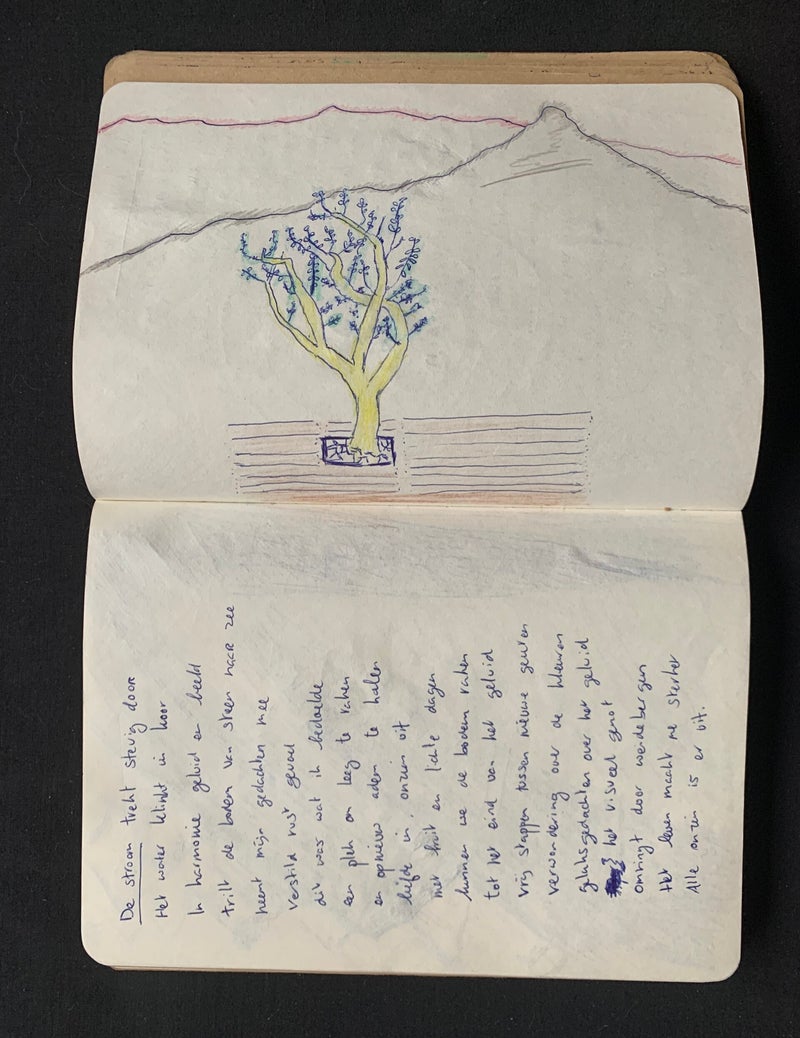 De stroom trekt stevig door
Het water klinkt in koor
In harmonie geluid en beeld
trilt de bodem van steen naar zee
neemt mijn gedachten mee
verstild rust gevoel
dit was wat ik bedoelde
een plek om leeg te raken
en opnieuw adem te halen
liefde in, onzin uit
met fruit en lichte dagen
kunnen we de bodem raken
tot het eind van het geluid
vrij stappen tussen nieuwe geuren
verwondering over de kleuren
geluksgedachten over het geluid
het visueel genot
omringt door wonderbergen
Het leven maakt me sterker
Alle onzin is er uit.